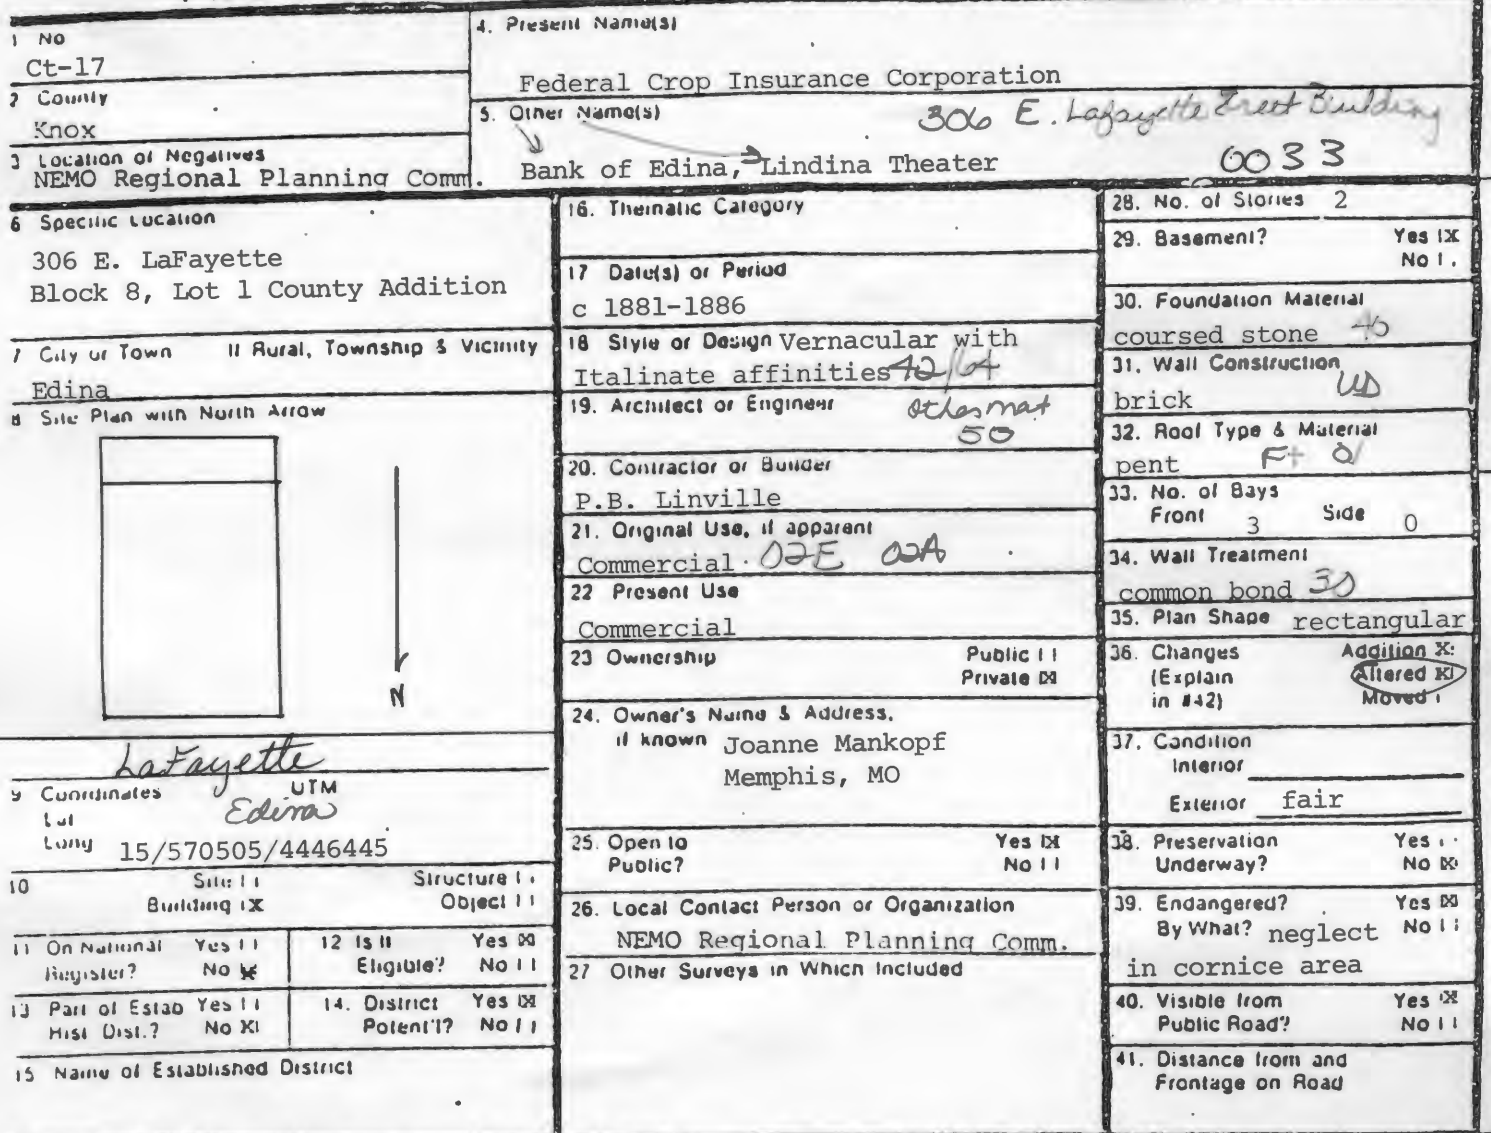 1 No
Ct-17
2 County
Knox
3 Location of Negatives
NEMO Regional Planning Comm.
4. Present Name(s)
Federal Crop Insurance Corporation
5. Other Name(s)
306 E. Lafayette Street Building
Bank of Edina, Lindina Theater
0033
6 Specific Location
306 E. LaFayette
Block 8, Lot 1 County Addition
7 City or Town If Rural, Township & Vicinity
Edina
8 Site Plan with North Arrow
N
LaFayette
9 Coordinates UTM
Lat
Edina
Long
15/570505/4446445
10 Site Structure
Building X Object
11 On National Register? Yes No X
12 Is It Eligible? Yes X No
13 Part of Estab Hist Dist.? Yes No X
14. District Potent'l? Yes X No
15 Name of Established District
16. Thematic Category
17 Date(s) or Period
c 1881-1886
18 Style or Design Vernacular with
Italinate affinities 42/64
19. Architect or Engineer
50
20. Contractor or Builder
P.B. Linville
21. Original Use, if apparent
Commercial 02E 02A
22 Present Use
Commercial
23 Ownership Public
Private X
24. Owner's Name & Address,
if known Joanne Mankopf
Memphis, MO
25. Open to Yes X
Public? No
26. Local Contact Person or Organization
NEMO Regional Planning Comm.
27 Other Surveys in Which Included
28. No. of Stories 2
29. Basement? Yes X
No
30. Foundation Material
coursed stone 40
31. Wall Construction
brick
32. Roof Type & Material
pent
33. No. of Bays
Front 3 Side 0
34. Wall Treatment
common bond 30
35. Plan Shape rectangular
36. Changes Addition X
(Explain Altered X
in #42) Moved
37. Condition
Interior
Exterior fair
38. Preservation Yes
Underway? No X
39. Endangered? Yes X
By What? neglect No
in cornice area
40. Visible from Yes X
Public Road? No
41. Distance from and
Frontage on Road